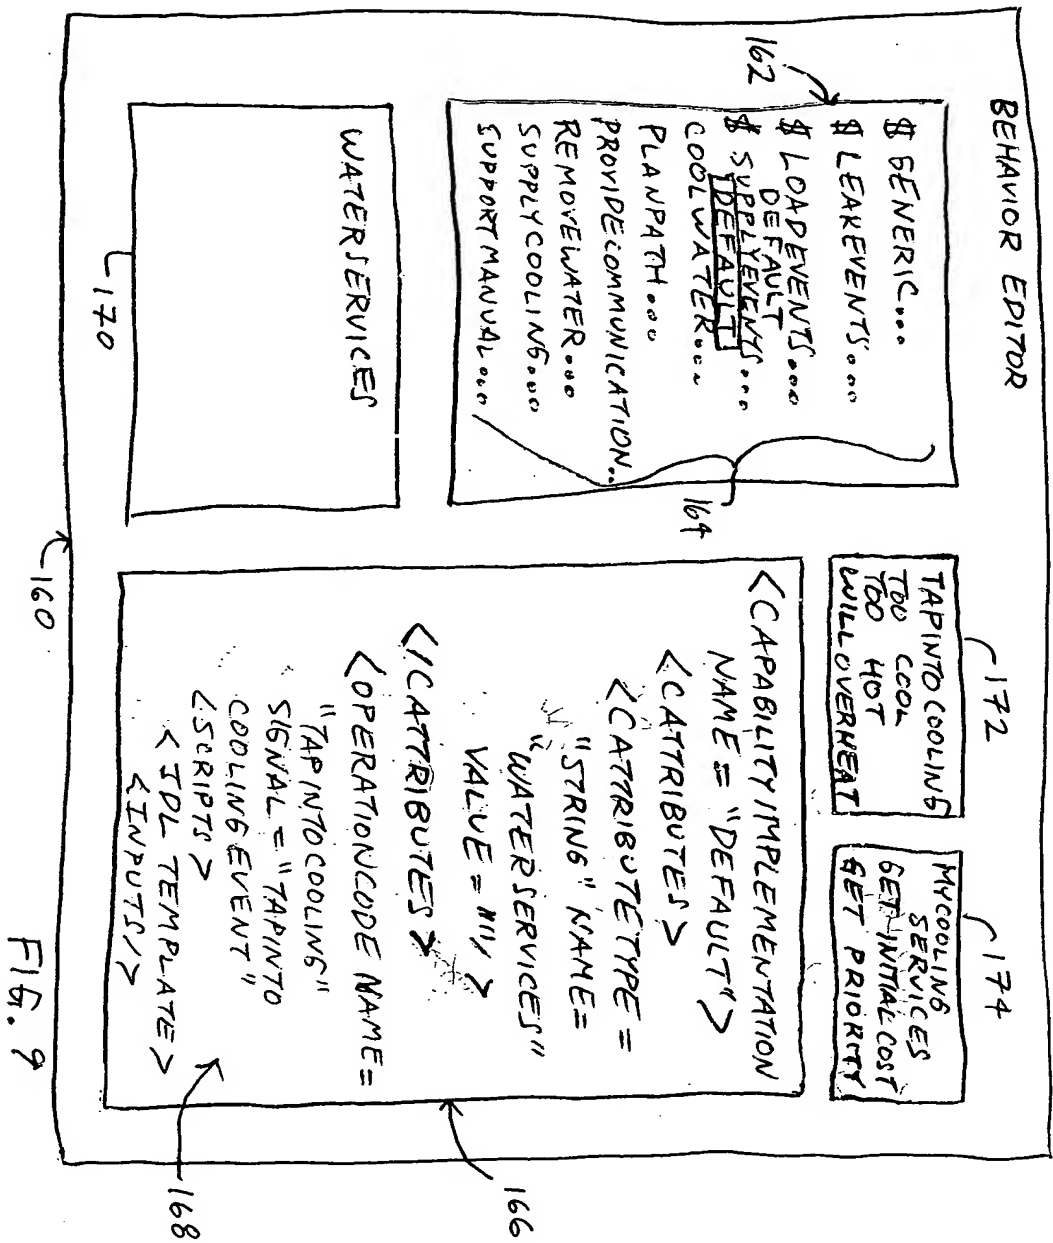 BEHAVIOR EDITOR
162
$ GENERIC...
$ LEAKEVENTS...
$ LOADEVENTS...
DEFAULT
$ SUPPLYEVENTS...
DEFAULT
COOLWATER...
PLANPATH...
PROVIDECOMMUNICATION..
REMOVEWATER...
SUPPLYCOOLING...
SUPPORTMANUAL...
164
WATERSERVICES
170
160
TAPINTOCOOLING
TOO COOL
TOO HOT
WILLOVERHEAT
172
MYCOOLING
SERVICES
GET INITIAL COST
GET PRIORITY
174
<CAPABILITY IMPLEMENTATION
NAME = "DEFAULT">
<CATTRIBUTES>
<CATTRIBUTETYPE =
"STRING" NAME =
"WATERSERVICES"
VALUE = ""/>
</CATTRIBUTES>
<OPERATIONCODE NAME =
"TAPINTOCOOLING"
SIGNAL = "TAPINTO
COOLING EVENT"
<SCRIPTS>
<JDL TEMPLATE>
<INPUTS/>
166
168
FIG. 9